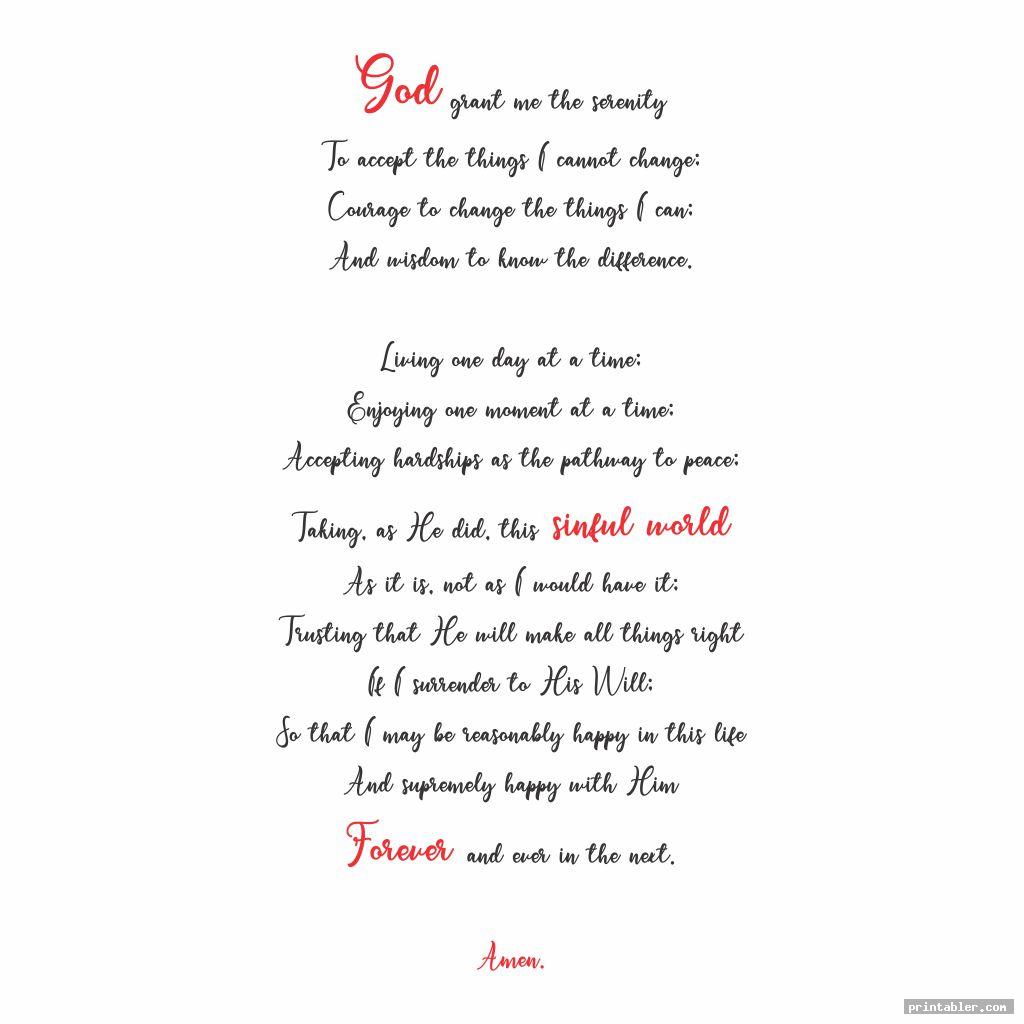 God grant me the serenity
To accept the things I cannot change;
Courage to change the things I can;
And wisdom to know the difference.
Living one day at a time;
Enjoying one moment at a time;
Accepting hardships as the pathway to peace;
Taking, as He did, this sinful world
As it is, not as I would have it;
Trusting that He will make all things right
If I surrender to His Will;
So that I may be reasonably happy in this life
And supremely happy with Him
Forever and ever in the next.
Amen.
printabler.com